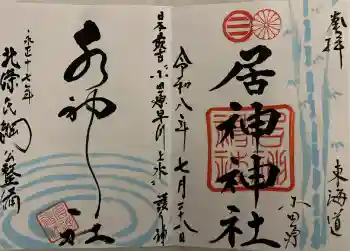 奉拝
東海道
小田原
居神神社
令和八年七月二十八日
日本最古小田原早川上水護り神
水神社
永正十七年
北條氏綱公整備